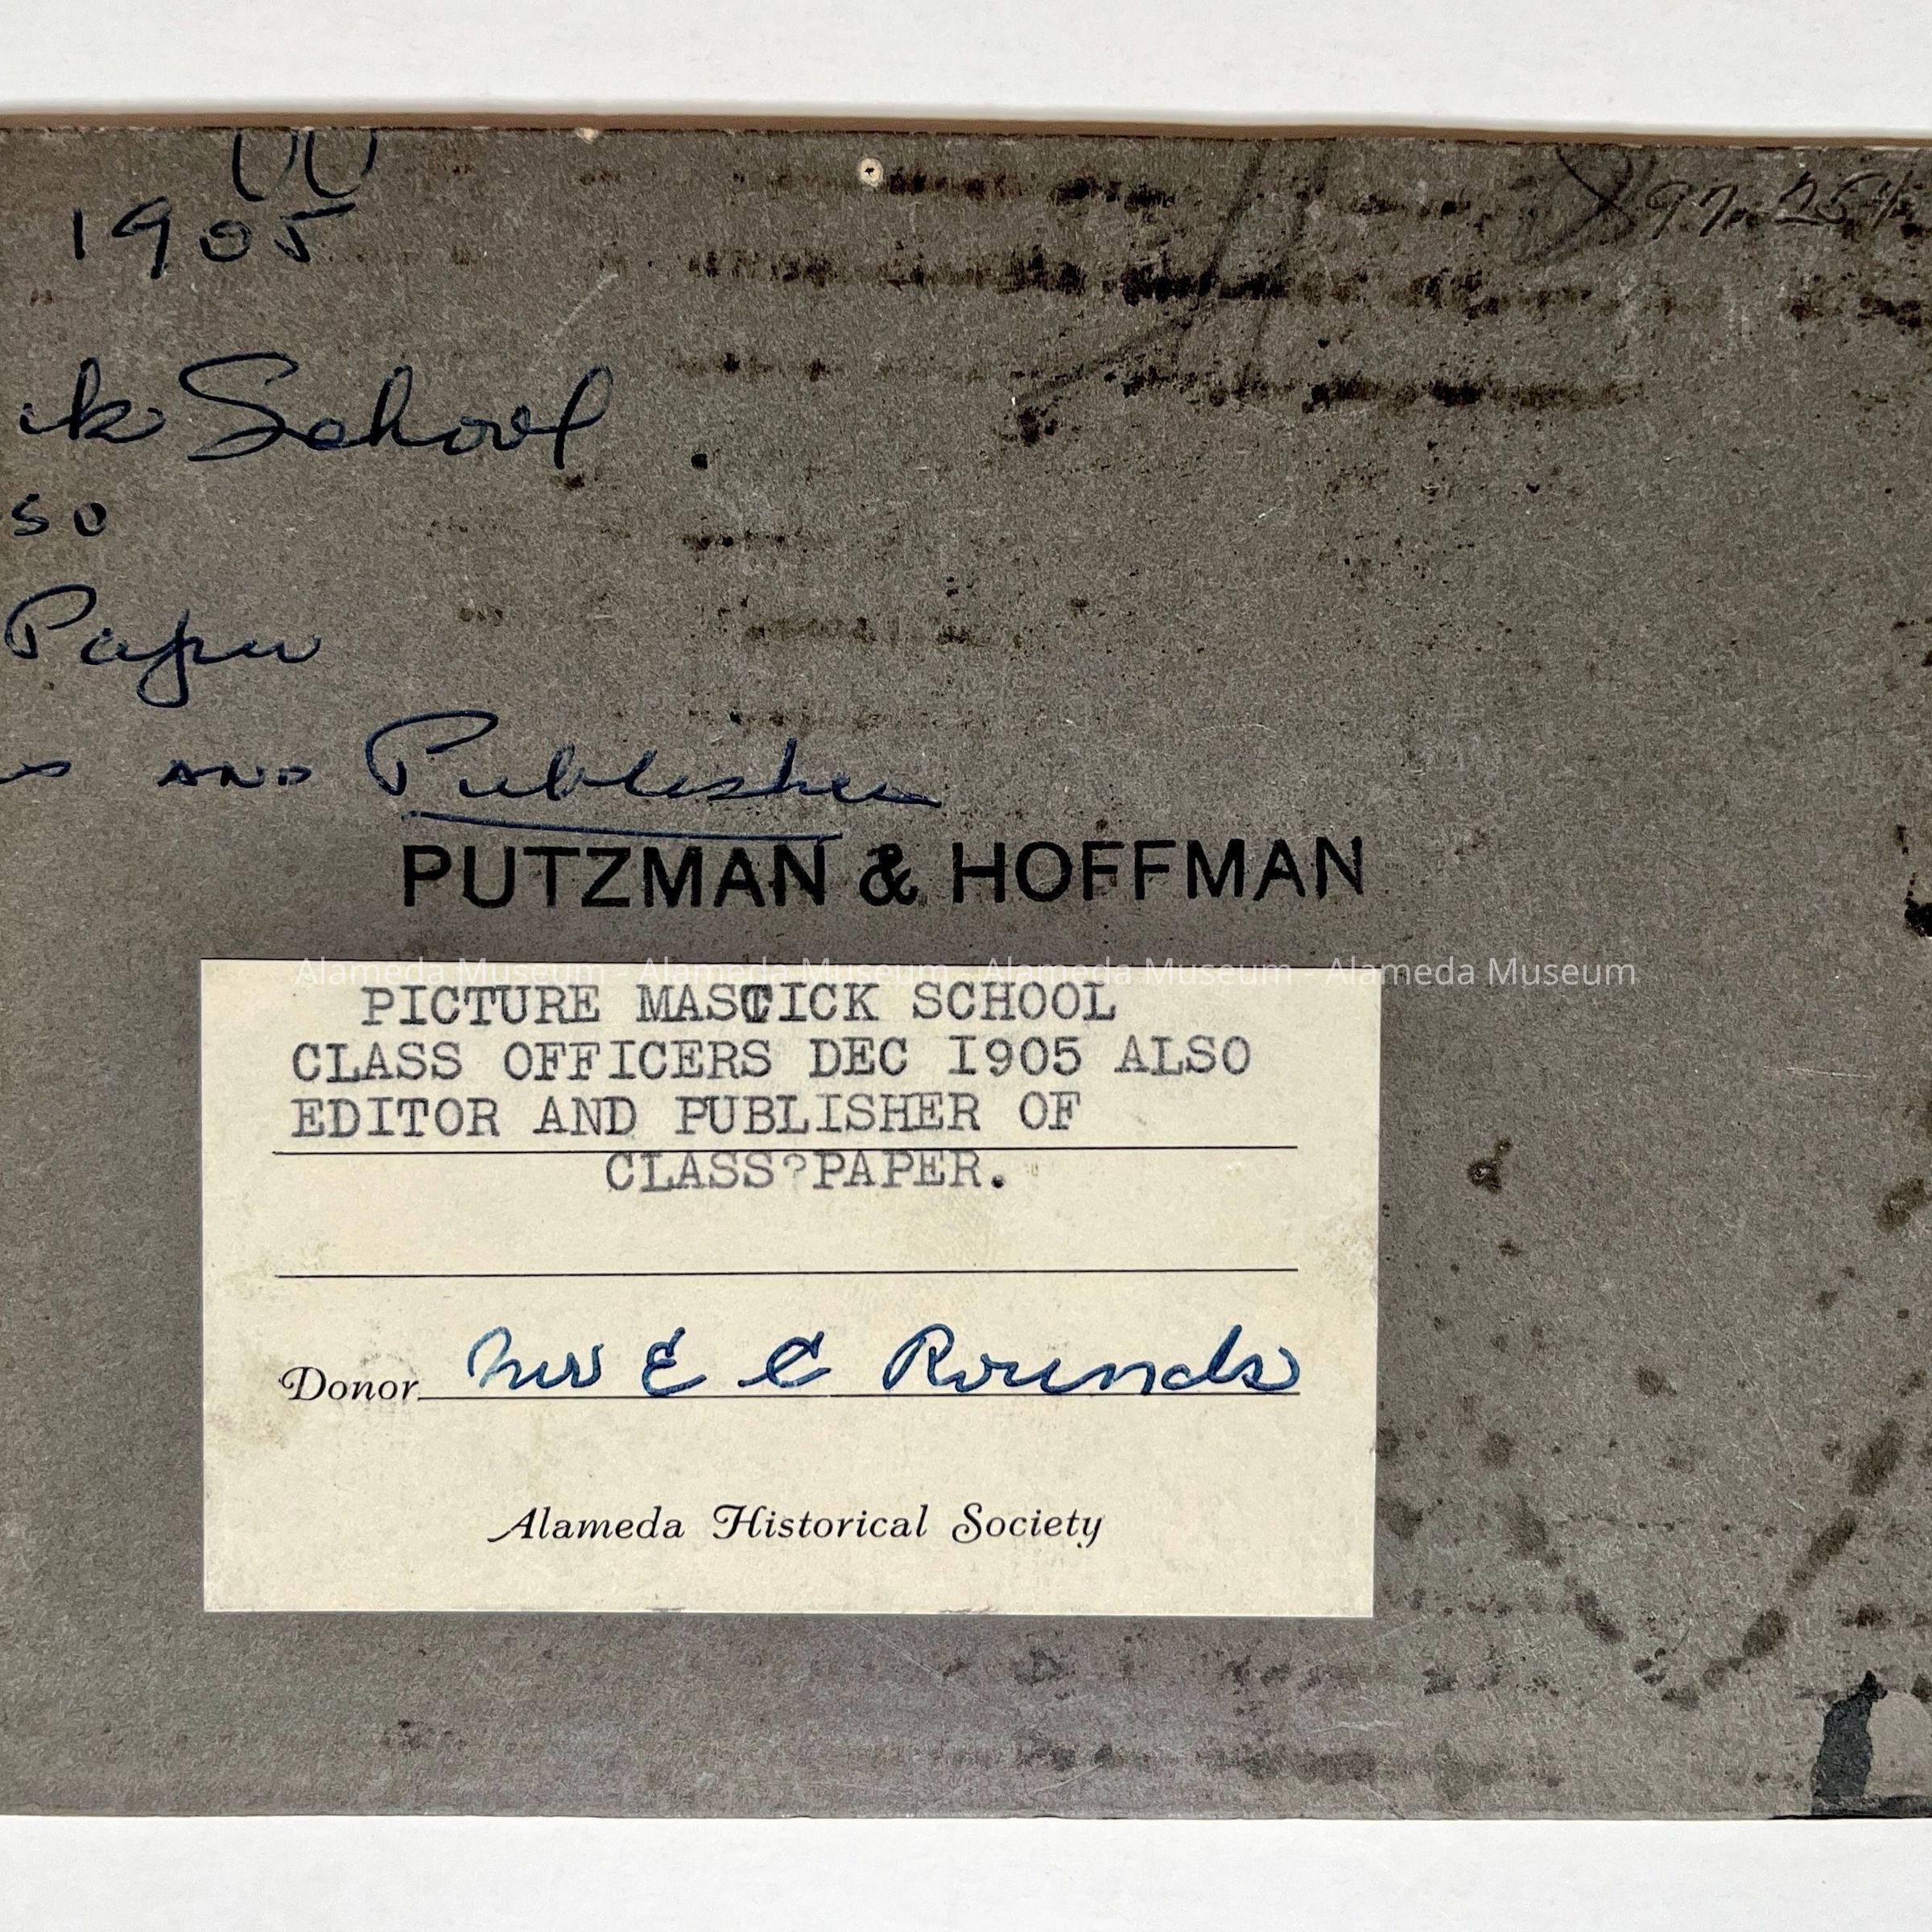 1905
97.254
ck School
so
Paper
s AND Publisher
PUTZMAN & HOFFMAN
Alameda Museum - Alameda Museum - Alameda Museum - Alameda Museum
PICTURE MASTICK SCHOOL
CLASS OFFICERS DEC I905 ALSO
EDITOR AND PUBLISHER OF
CLASS?PAPER.
Donor Mrs E C Rounds
Alameda Historical Society